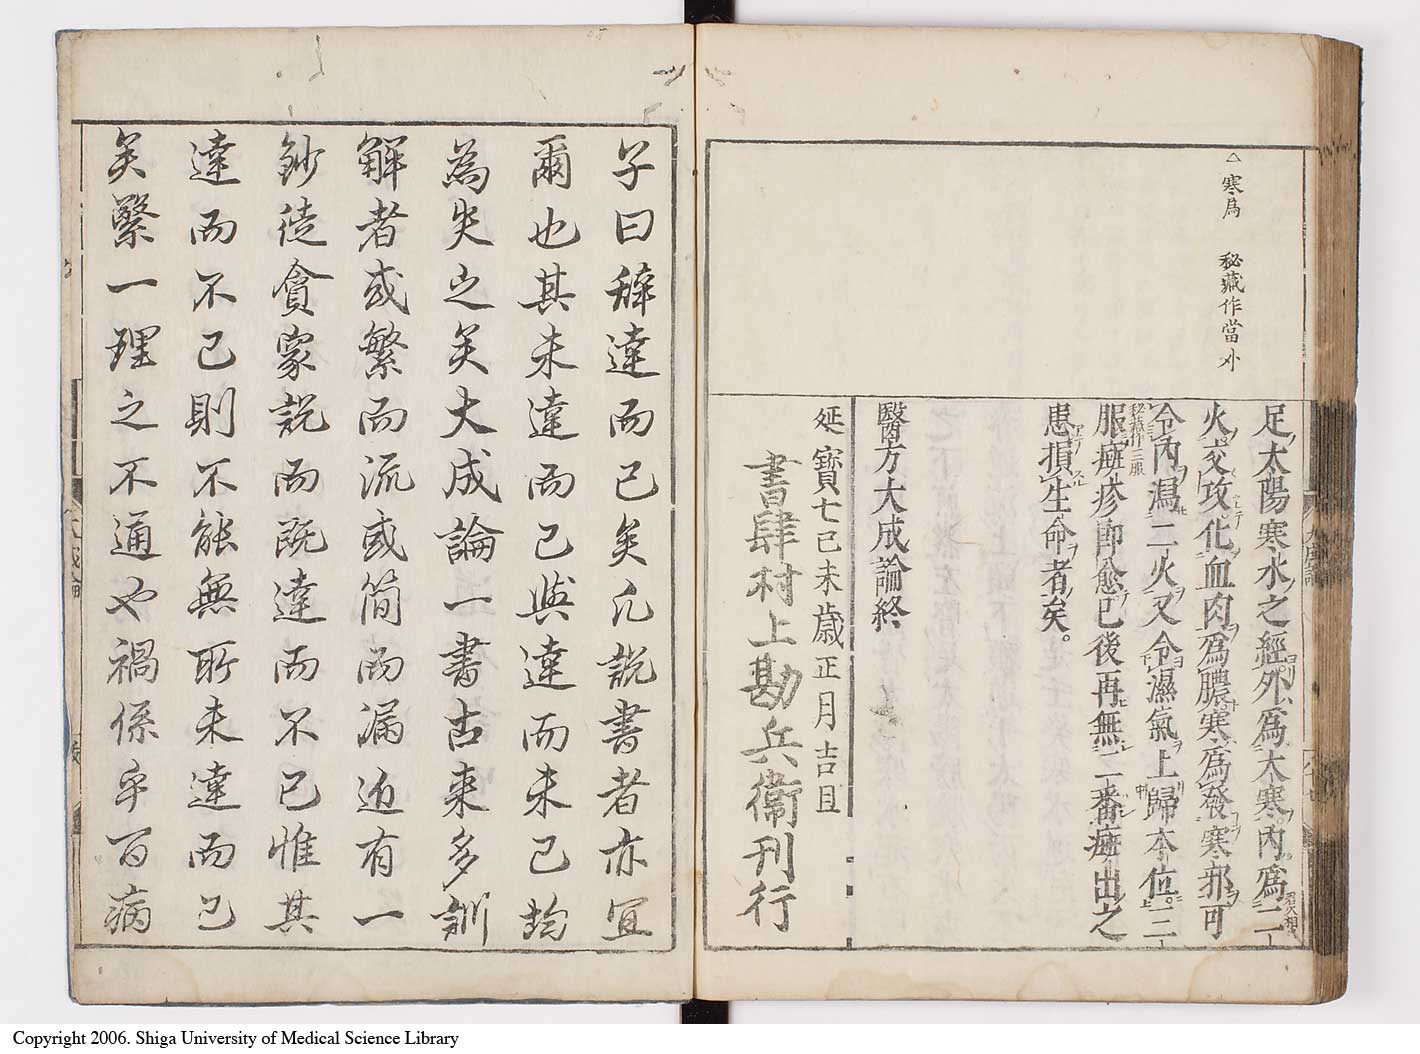 △寒爲 秘藏作當外
足太陽寒水之經外爲大寒內爲二君火相
火交攻化血肉爲膿寒爲發寒邪可
令內瀉二火又令濕氣上歸本位三
服秘藏作三服瘧疹即愈已後再無二番癍出之
患損生命者矣。
醫方大成論終
延寶七己未歲正月吉旦
書肆村上勘兵衞刊行
子曰辭達而已矣凡說書者亦宜
爾也其未達而已與達而未已均
為失之矣大成論一書古來多訓
解者或繁而流或簡而漏近有一
鈔徒貪家說而既達而不已惟其
達而不已則不能無所未達而已
矣緊一理之不通也禍係乎百病
大成論
Copyright 2006. Shiga University of Medical Science Library